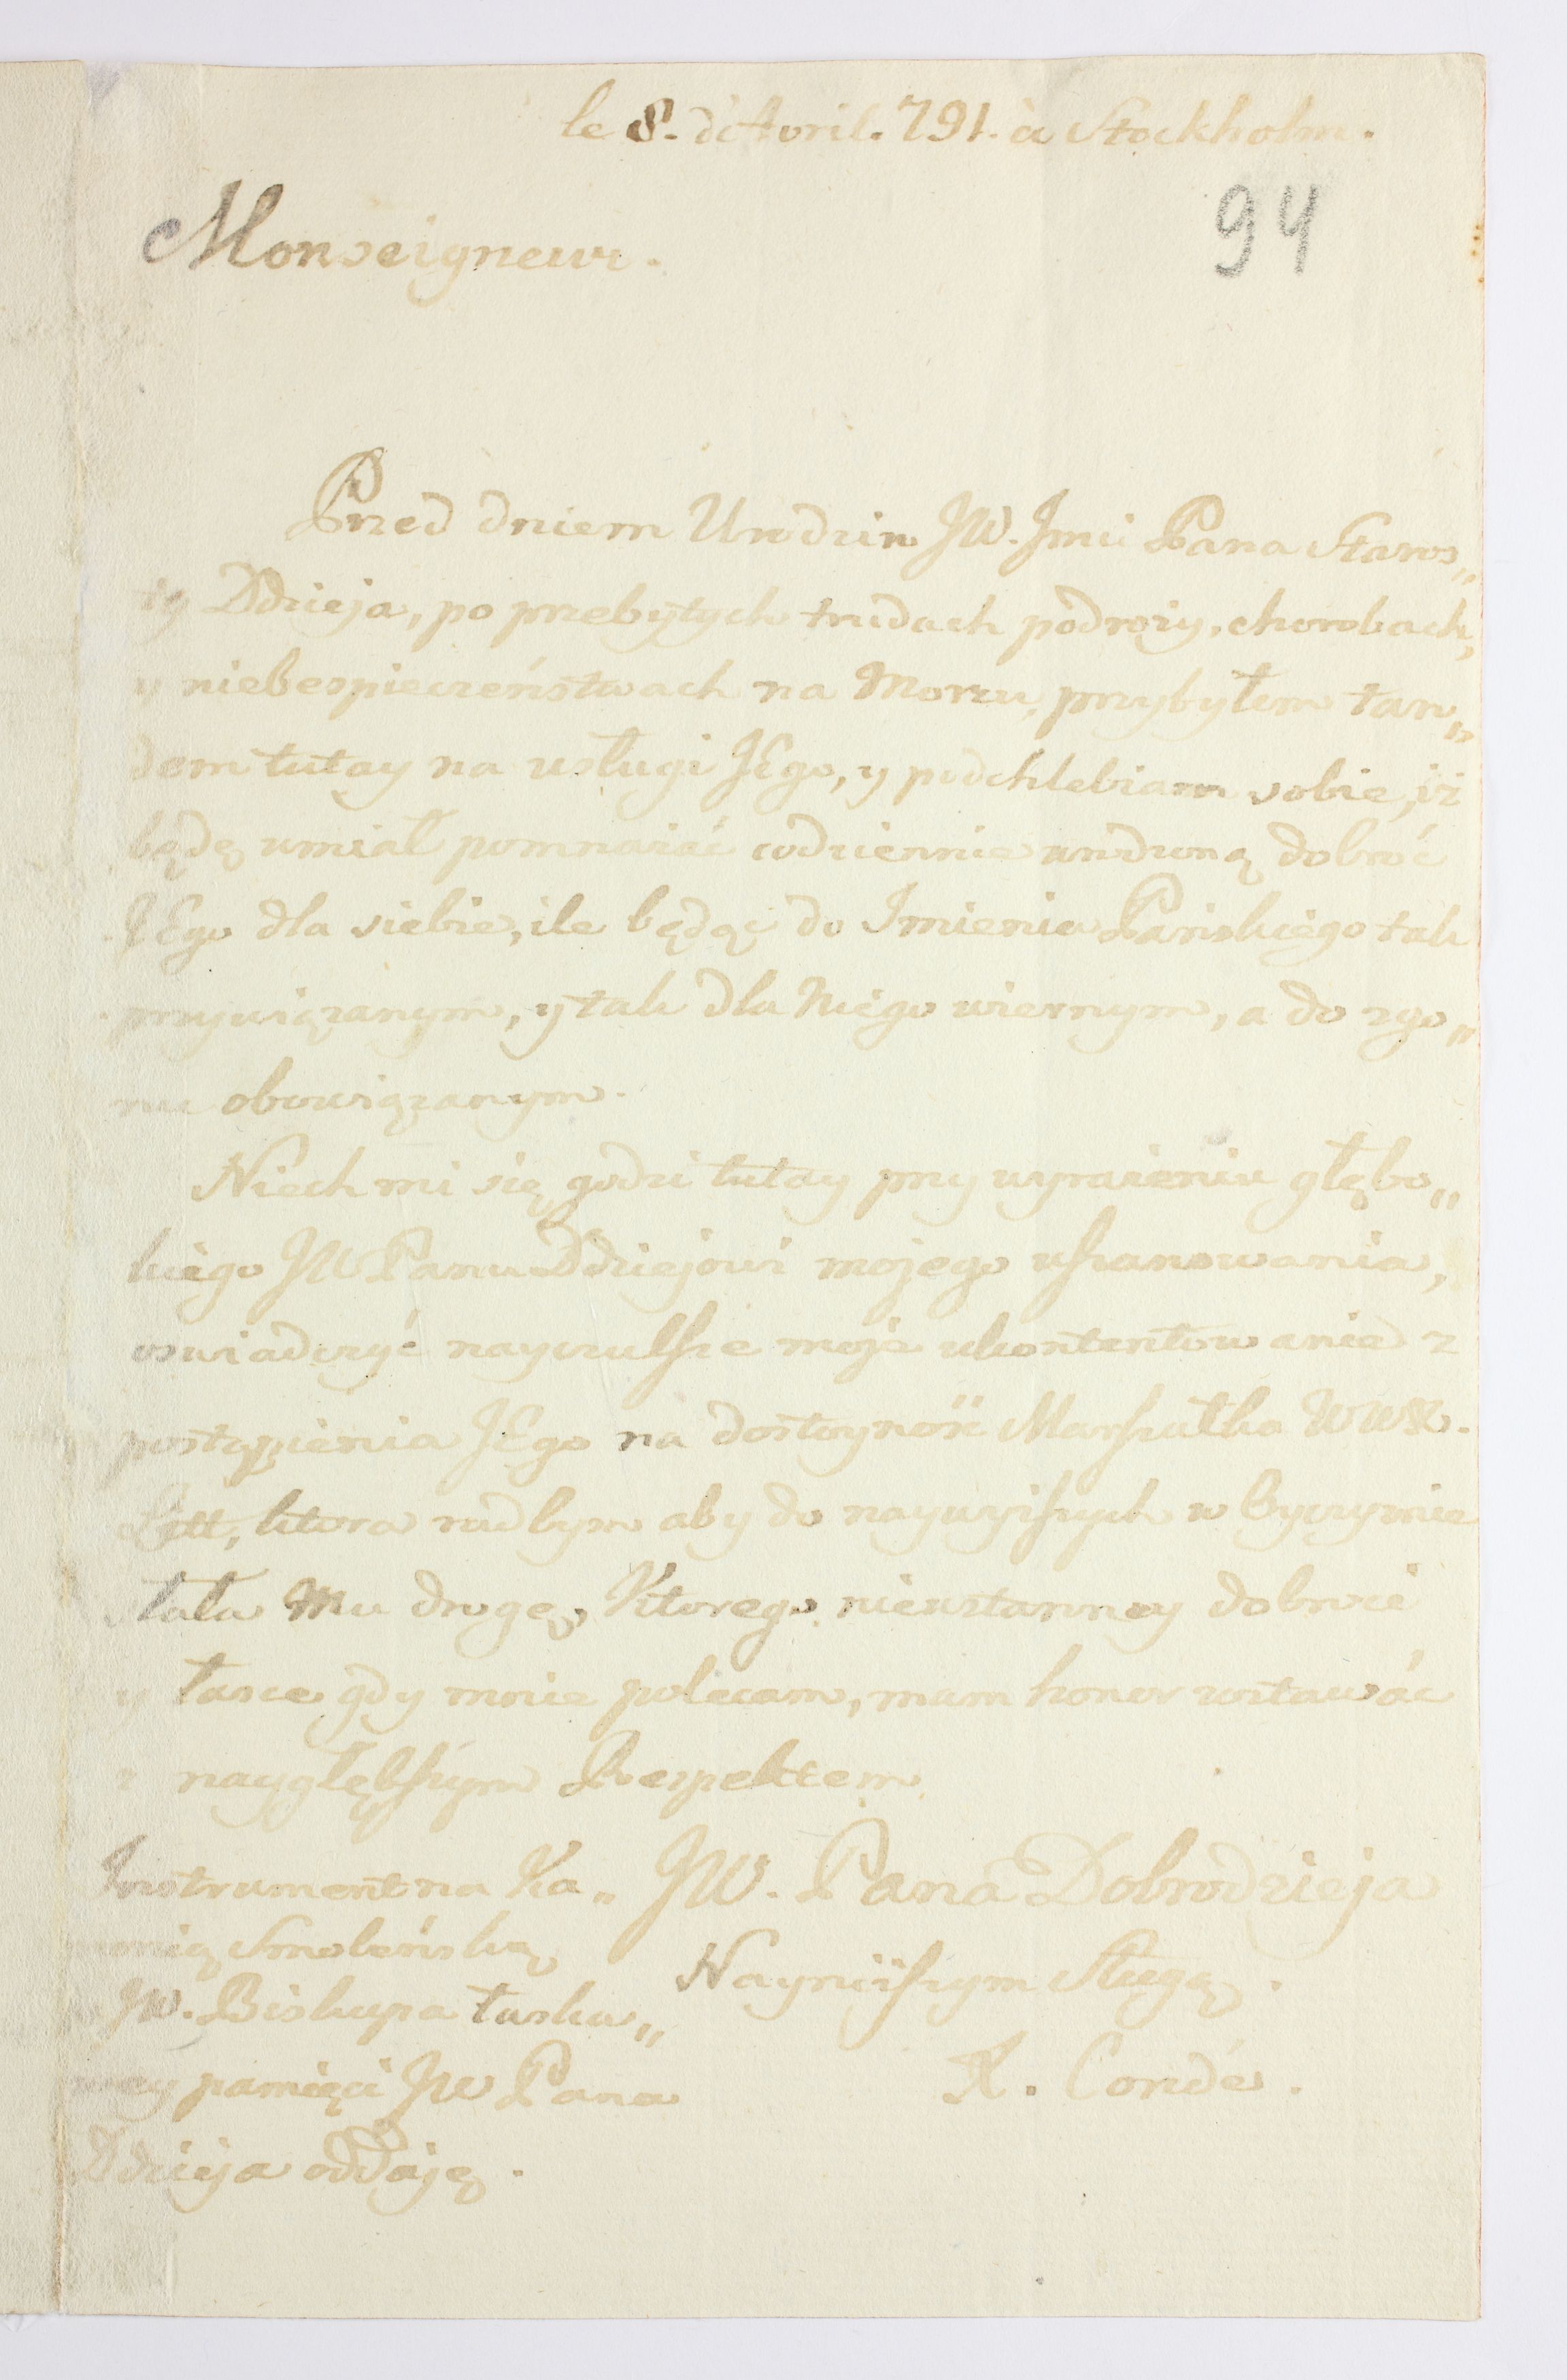 le 8. d'Avril. 791. à Stockholm.
94
Monseigneur.
Przed dniem Urodzin JW. Jmći Pana Staros„
ty Ddzieja, po przebytych trudach podroży, chorobach,
y niebespieczeństwach na Morzu, przybyłem tan„
dem tutay na usługi JEgo, y podchlebiam sobie, iż
będę umiał pomnażać codziennie wrodzoną dobroć
JEgo dla siebie, ile będąc do Jmienia Pańskiego tak
przywiązanym, y tak dla Niego wiernym, a do zgo„
nu obowiązanym.
Niech mi się godzi tutay przy wyrażeniu głębo„
kiego JW Panu Ddziejowi mojego uszanowania,
oswiadczyć nayczulsze moje ukontentowanie z
postąpienia JEgo na dostoyność Marszałka WWX.
Litt, ktora rad bym aby do naywyższych w Oyczyznie
słała Mu drogę, Ktorego nieustanney dobroci
y łasce gdy mnie polecam, mam honor zostawać
z naygłębszym Respektem
JW. Pana Dobrodzieja
Nayniższym Sługą.
K. Condé.
Instrument na Ka„
nonią Smoleńską
JW. Biskupa łaska„
wey pamięci JW Pana
Ddzieja oddaję.